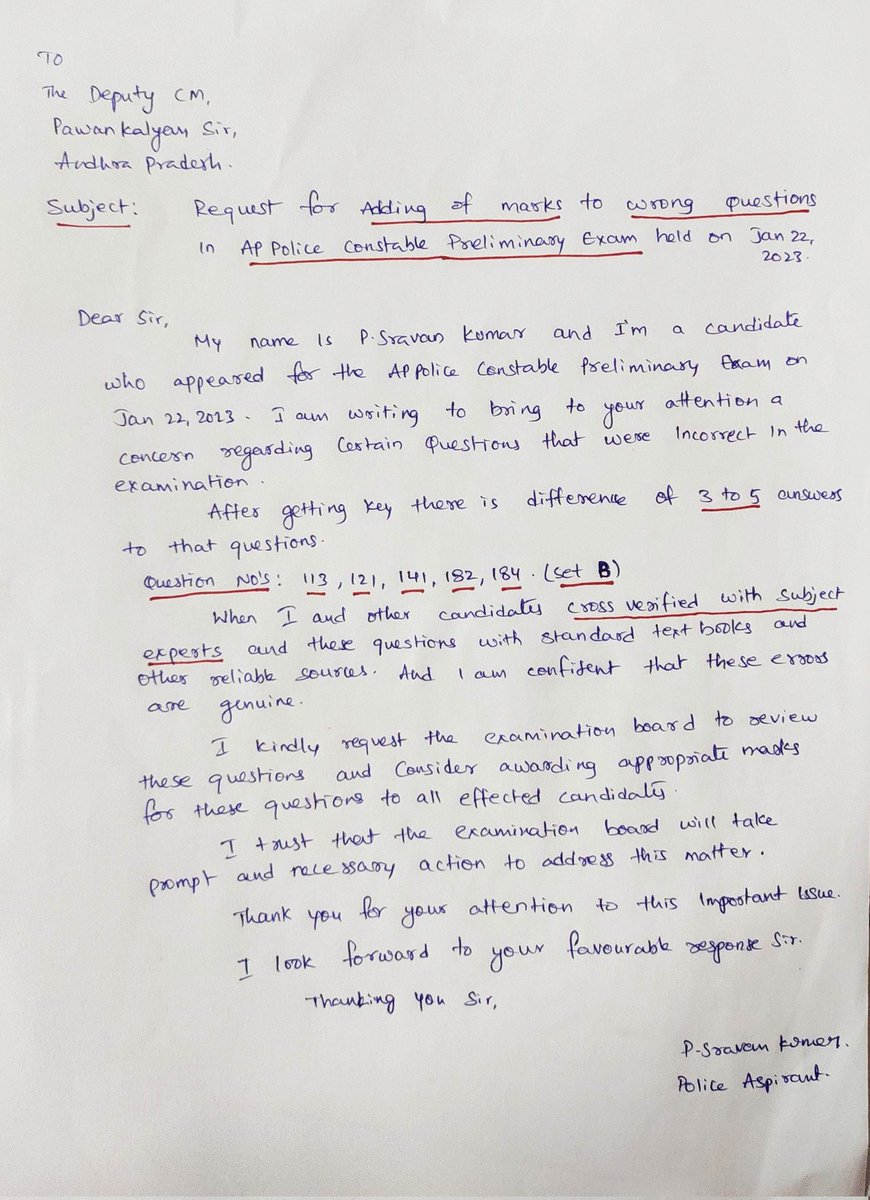 To
The Deputy CM,
Pawankalyan Sir,
Andhra Pradesh.
Subject: Request for Adding of marks to wrong questions
in AP Police Constable Preliminary Exam held on Jan 22,
2023.
Dear Sir,
My name is P. Sravan Kumar and I'm a candidate
who appeared for the AP Police Constable Preliminary Exam on
Jan 22, 2023. I am writing to bring to your attention a
concern regarding Certain Questions that were Incorrect in the
examination.
After getting key there is difference of 3 to 5 answers
to that questions.
Question No's: 113, 121, 141, 182, 184. (Set B)
When I and other candidates cross verified with subject
experts and these questions with standard text books and
other reliable sources. And I am confident that these errors
are genuine.
I kindly request the examination board to review
these questions and Consider awarding appropriate marks
for these questions to all effected candidates.
I trust that the examination board will take
prompt and necessary action to address this matter.
Thank you for your attention to this Important Issue.
I look forward to your favourable response Sir.
Thanking you Sir,
P. Sravan Kumar.
Police Aspirant.